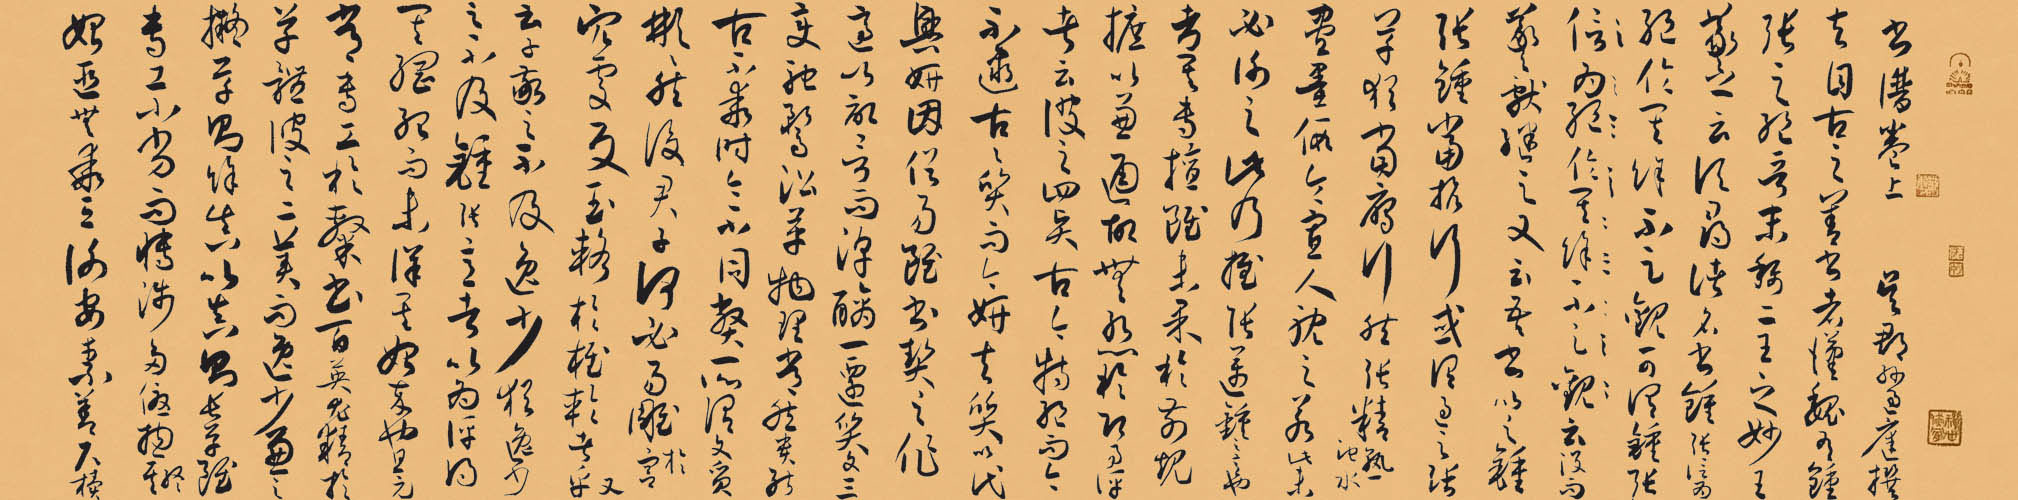 書譜卷上 吳郡孫過庭撰
夫自古之善書者漢魏有鍾
張之絕晉末稱二王之妙王
羲之云頃尋諸名書鍾張信為
絕倫其餘不足觀可謂鍾張
信為絕倫其餘不足觀云沒而
羲獻繼之又云吾書比之鍾
張鍾當抗行或謂過之張
草猶當鴈行然張精熟池水
盡墨假令寡人耽之若此未
必謝之此乃推張邁鍾之意也
考其專擅雖未果於前規
摭以兼通故無慙於即事評
者云彼之四賢古今特絕而今
不逮古古質而今妍夫質以代
興妍因俗易雖書契之作
適以記言而淳醨一遷質文三
變馳騖沿革物理常然貴能
古不乖時今不同弊所謂文質
彬彬然後君子何必易雕宮於
穴處反玉輅於椎輪者乎又
云子敬之不及逸少猶逸少
之不及鍾張意者以為評得
其綱紀而未詳其始卒也且元
常專工於隸書百英尤精於
草體彼之二美而逸少兼之
擬草則餘真比真則長草雖
專工小劣而博涉多優揔其終
始匪無乖互謝安素善尺牘